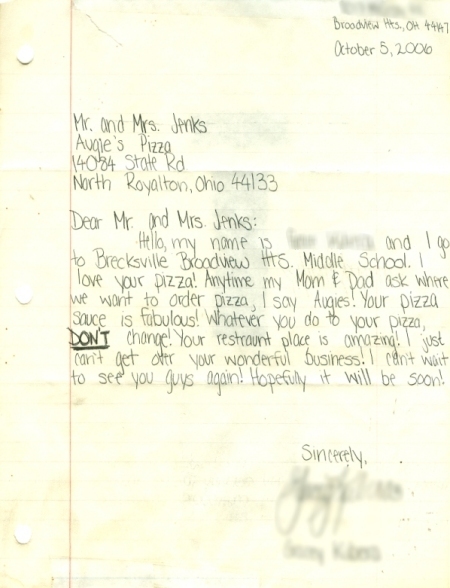 Broadview Hts., OH 44147
October 5, 2006
Mr. and Mrs. Jenks
Augie's Pizza
14084 State Rd
North Royalton, Ohio 44133
Dear Mr. and Mrs. Jenks:
Hello, my name is and I go
to Brecksville Broadview HTS. Middle School. I
love your pizza! Anytime my Mom & Dad ask where
we want to order pizza, I say Augies! Your pizza
sauce is fabulous! Whatever you do to your pizza,
DON'T change! Your restraunt place is amazing! I just
can't get over your wonderful business! I can't wait
to see you guys again! Hopefully it will be soon!
Sincerely,